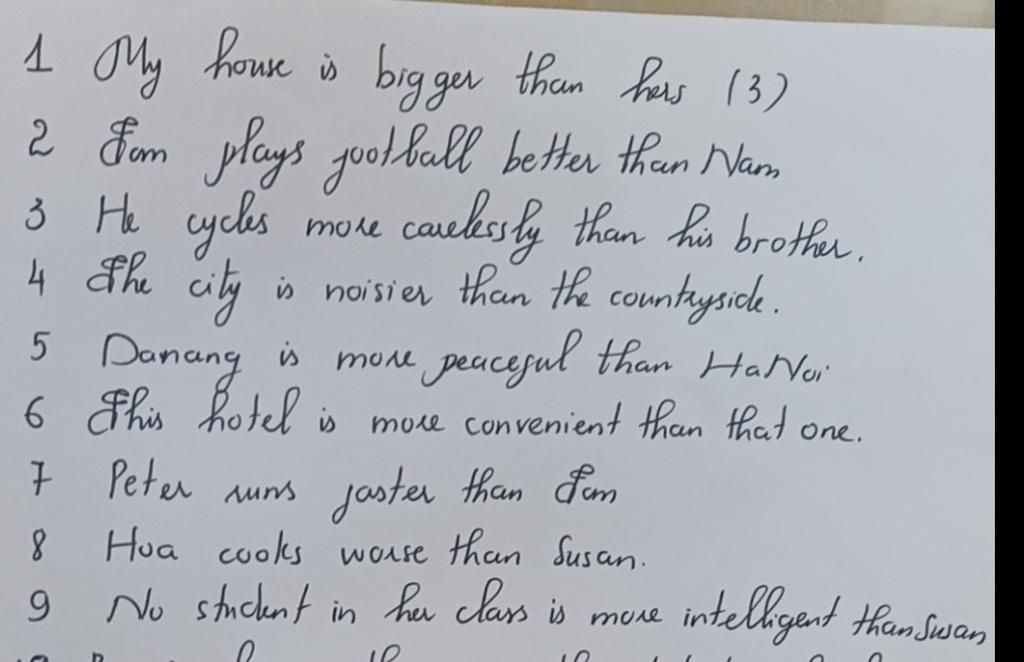 1 My house is bigger than hers (3)
2 Tom plays football better than Nam
3 He cycles more carelessly than his brother.
4 The city is noisier than the countryside.
5 Danang is more peaceful than HaNoi
6 This hotel is more convenient than that one.
7 Peter runs faster than Tom
8 Hoa cooks worse than Susan.
9 No student in her class is more intelligent than Susan